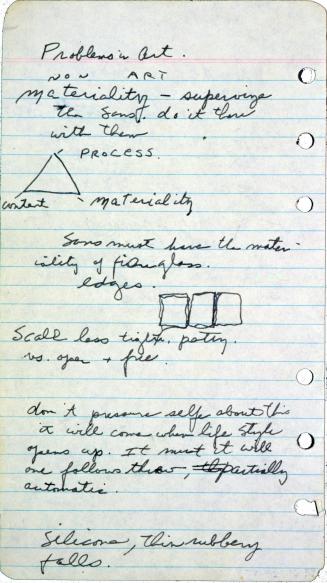 Problems in Art.
NON ART
materiality - supervize
the Sans. do it there
with them
PROCESS.
content materiality
Sans must have the mater-
iality of fiberglass.
edges.
Scale less tight,
vs. open + free.
don't pressure self about this
it will come when life style
opens up. It must it will
one follows thr, partially
automatic.
Silicone, thin rubbery
falls.